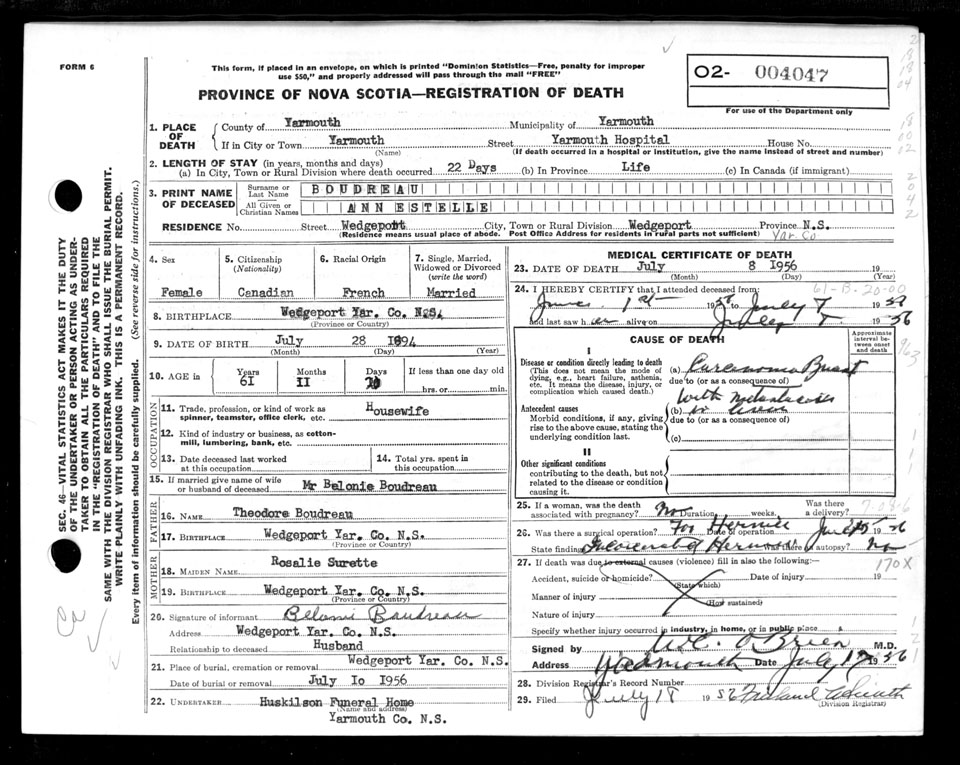 FORM 6
This form, if placed in an envelope, on which is printed "Dominion Statistics—Free, penalty for improper
use $50," and properly addressed will pass through the mail "FREE"
O2- 004047
For use of the Department only
PROVINCE OF NOVA SCOTIA—REGISTRATION OF DEATH
1. PLACE OF DEATH { County of Yarmouth Municipality of Yarmouth
If in City or Town Yarmouth (Name) Street Yarmouth Hospital House No.
(If death occurred in a hospital or institution, give the name instead of street and number)
2. LENGTH OF STAY (in years, months and days)
(a) In City, Town or Rural Division where death occurred 22 Days (b) In Province Life (c) In Canada (if immigrant)
3. PRINT NAME OF DECEASED
Surname or Last Name BOUDREAU
All Given or Christian Names ANN ESTELLE
RESIDENCE No. Street Wedgeport City, Town or Rural Division Wedgeport Province N.S.
(Residence means usual place of abode. Post Office Address for residents in rural parts not sufficient) Yar. Co
4. Sex
Female
5. Citizenship (Nationality)
Canadian
6. Racial Origin
French
7. Single, Married, Widowed or Divorced (write the word)
Married
8. BIRTHPLACE Wedgeport Yar. Co. N.S.
(Province or Country)
9. DATE OF BIRTH July 28 1894
(Month) (Day) (Year)
10. AGE IN Years 61 Months II Days
If less than one day old
hrs. or min.
OCCUPATION
11. Trade, profession, or kind of work as spinner, teamster, office clerk, etc. Housewife
12. Kind of industry or business, as cotton-mill, lumbering, bank, etc.
13. Date deceased last worked at this occupation
14. Total yrs. spent in this occupation
15. If married give name of wife or husband of deceased Mr Belonie Boudreau
FATHER
16. NAME Theodore Boudreau
17. BIRTHPLACE Wedgeport Yar. Co. N.S.
(Province or Country)
MOTHER
18. MAIDEN NAME Rosalie Surette
19. BIRTHPLACE Wedgeport Yar. Co. N.S.
(Province or Country)
20. Signature of informant Beloni Boudreau
Address Wedgeport Yar. Co. N.S.
Relationship to deceased Husband
21. Place of burial, cremation or removal Wedgeport Yar. Co. N.S.
Date of burial or removal July Io I956
22. UNDERTAKER Huskilson Funeral Home
(Name and address)
Yarmouth Co. N.S.
MEDICAL CERTIFICATE OF DEATH
23. DATE OF DEATH July 8 I956 19
(Month) (Day) (Year)
24. I HEREBY CERTIFY that I attended deceased from: 61-B. 20-00
June 1st 19 to July 19
and last saw her alive on July 19 56
CAUSE OF DEATH
Approximate interval between onset and death
I
Disease or condition directly leading to death
(This does not mean the mode of dying, e.g., heart failure, asthenia, etc. It means the disease, injury, or complication which caused death.)
(a) Carcinoma Breast
due to (or as a consequence of)
with metastases
Antecedent causes
Morbid conditions, if any, giving rise to the above cause, stating the underlying condition last.
(b)
due to (or as a consequence of)
(c)
II
Other significant conditions
contributing to the death, but not related to the disease or condition causing it.
25. If a woman, was the death associated with pregnancy? No Duration weeks. Was there a delivery?
26. Was there a surgical operation? For Hernia Date of operation 19 56
State findings Hernia Was there autopsy? No
27. If death was due to external causes (violence) fill in also the following:
170X
Accident, suicide or homicide? (State which) Date of injury 19
Manner of injury (How sustained)
Nature of injury
Specify whether injury occurred in industry, in home, or in public place
Signed by W.C. O'Brien M.D.
Address Yarmouth Date July 19 56
28. Division Registrar's Record Number
29. Filed July 18 19 56
(Division Registrar)
SEC. 46—VITAL STATISTICS ACT MAKES IT THE DUTY
OF THE UNDERTAKER OR PERSON ACTING AS UNDER-
TAKER TO OBTAIN ALL THE PARTICULARS REQUIRED
IN THE "REGISTRATION OF DEATH" AND TO FILE THE
SAME WITH THE DIVISION REGISTRAR WHO SHALL ISSUE THE BURIAL PERMIT.
WRITE PLAINLY WITH UNFADING INK. THIS IS A PERMANENT RECORD.
Every item of information should be carefully supplied. (See reverse side for instructions.)